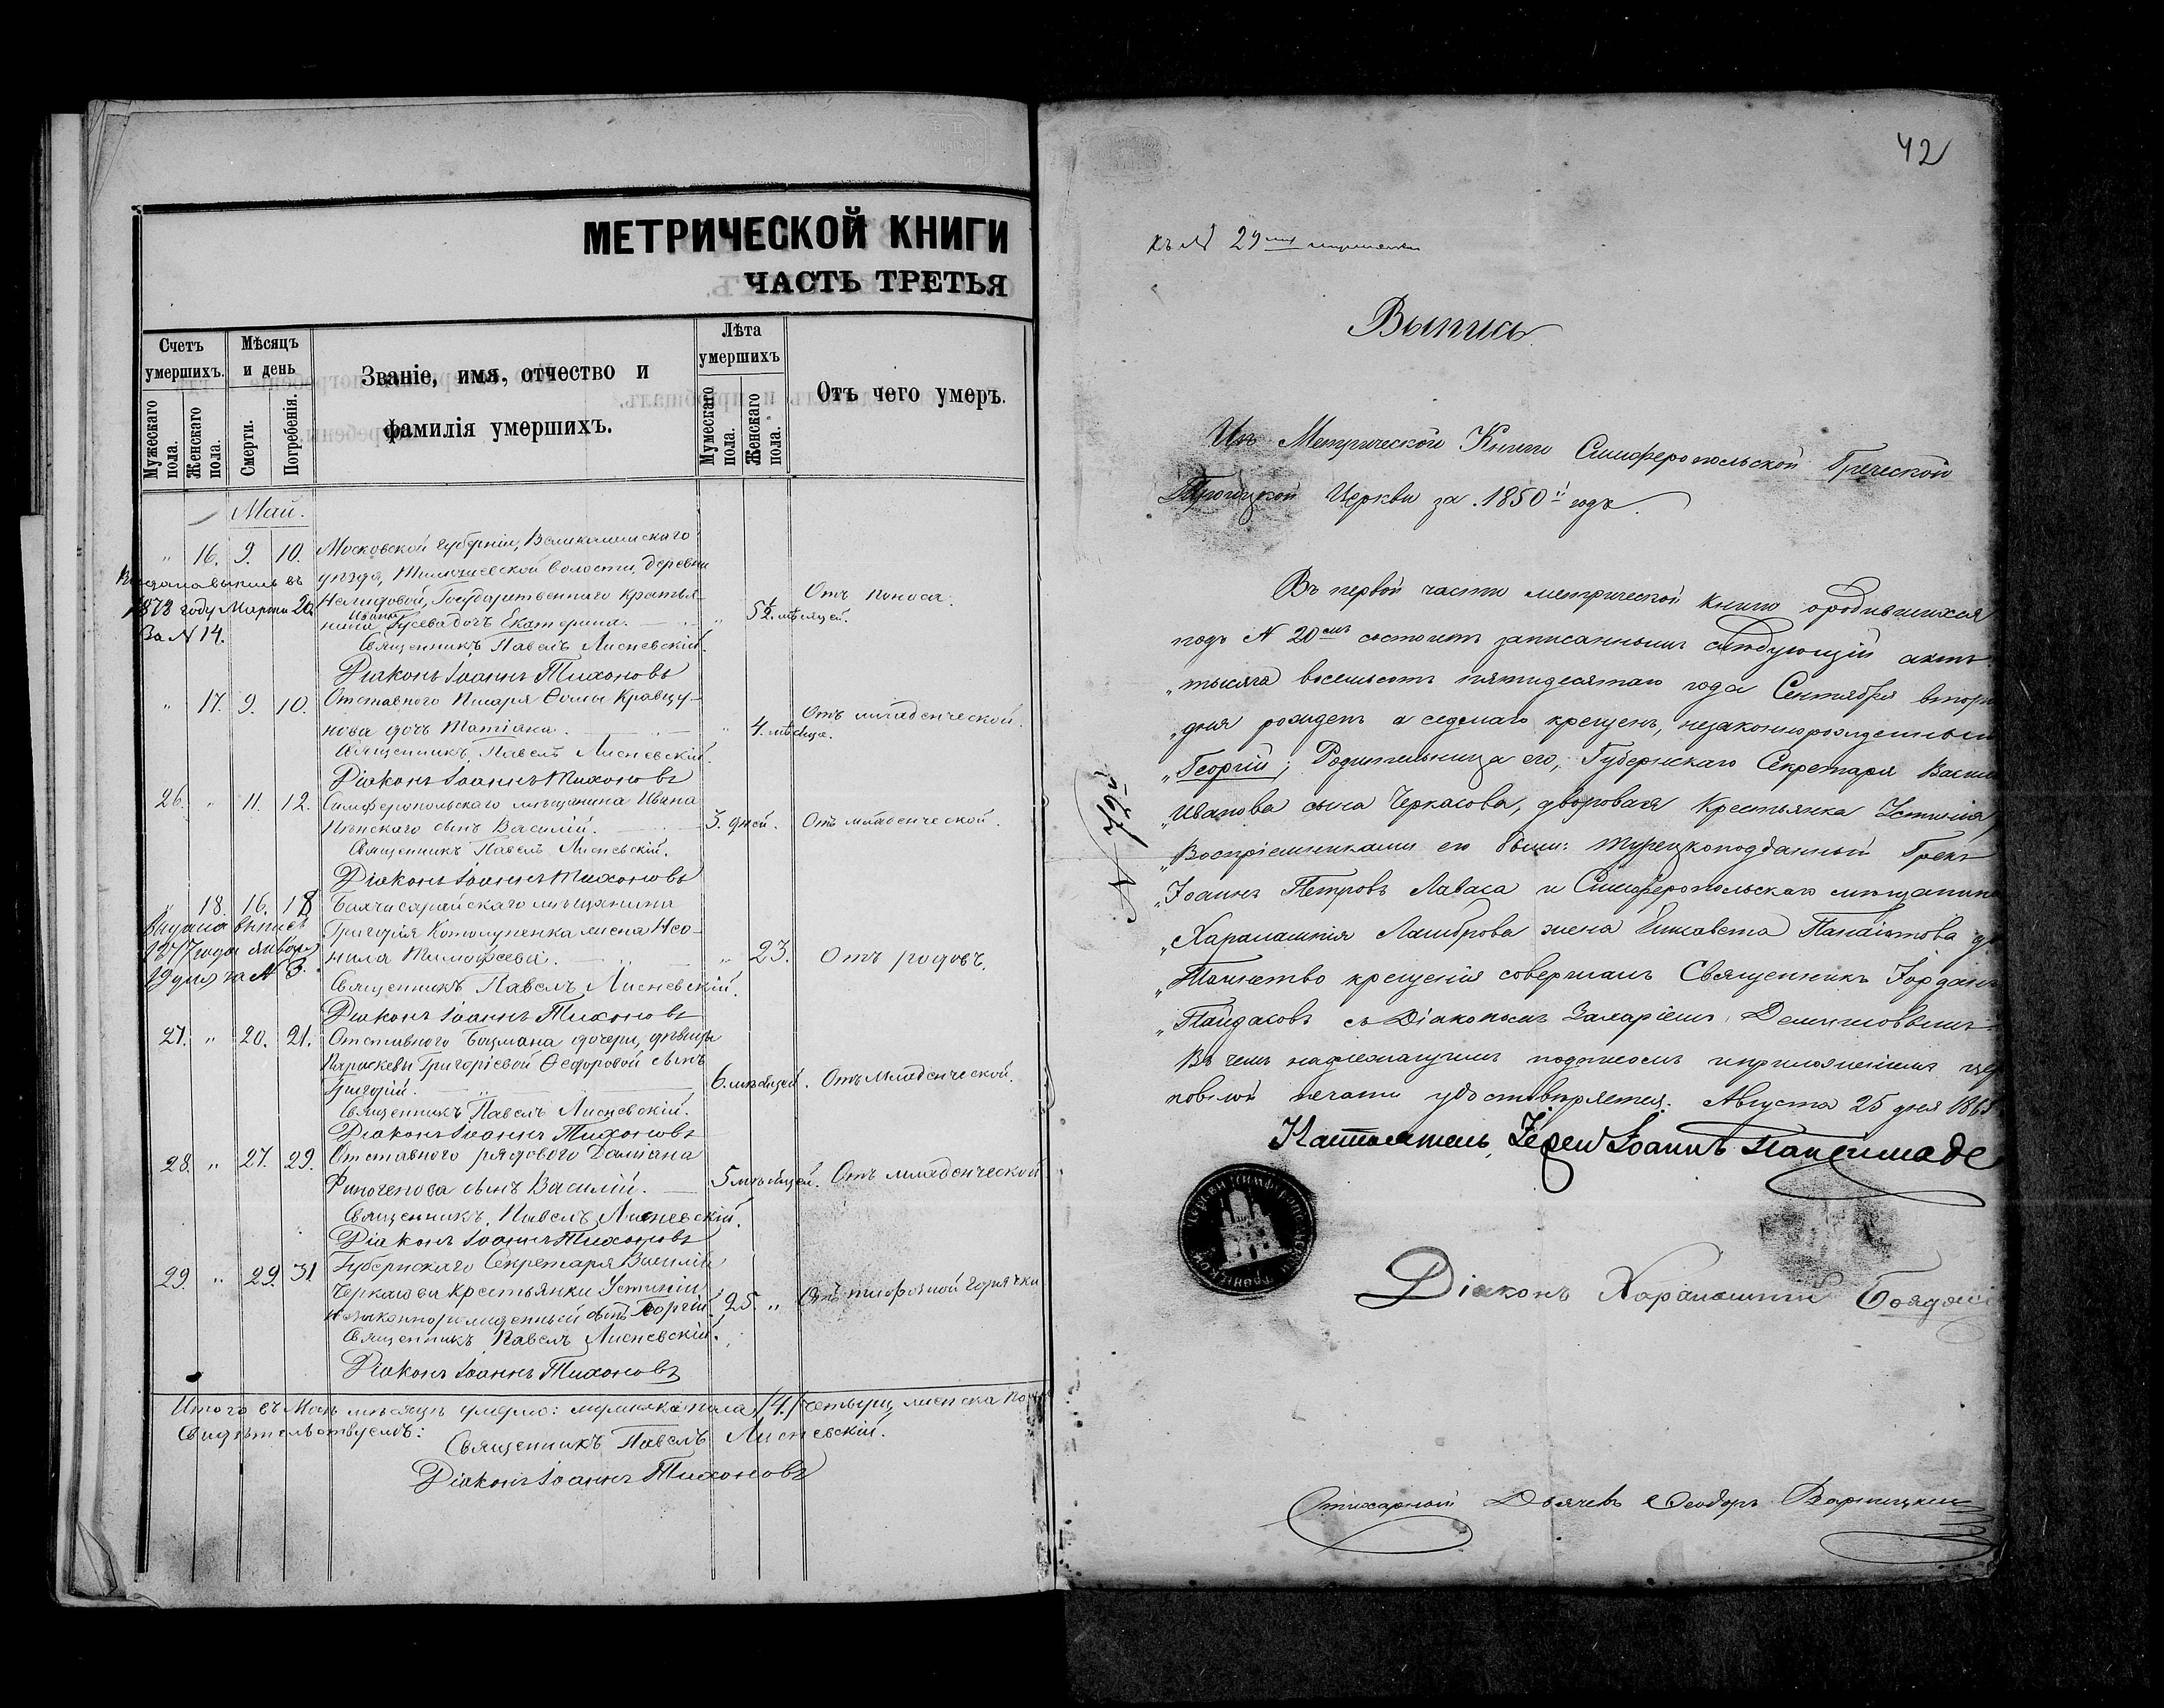 МЕТРИЧЕСКОЙ КНИГИ
ЧАСТЬ ТРЕТЬЯ
Счетъ умершихъ.
Мужескаго пола.
Женскаго пола.
Мѣсяцъ и день
Смерти.
Погребенія.
Званіе, имя, отчество и
фамилія умершихъ.
Лѣта умершихъ
Мумескаго пола.
Женскаго пола.
Отъ чего умеръ.
Май.
" 16. 9. 10. Московской губерніи,
уѣзда, волости, деревни
Государственного крестья-
нина Гусева дочь Екатерина. " 5½ мѣсяцей. Отъ поноса.
выпись въ
1873 году Марта 20.
За N 14.
Священникъ Павелъ Лисневскій.
Діаконъ Іоаннъ Тихоновъ
" 17. 9. 10. Отставного Писаря Ѳомы Кравцу-
нова дочь Татіяна. " 4. мѣсяца. Отъ младенческой.
Священникъ Павелъ Лисневскій.
Діаконъ Іоаннъ Тихоновъ
26. " 11. 12. Симферопольскаго мѣщанина Ивана
сынъ Василій. 3. дней. Отъ младенческой.
Священникъ Павелъ Лисневскій.
Діаконъ Іоаннъ Тихоновъ
" 18. 16. 18 Бахчисарайскаго мѣщанина
Григорія жена Нео-
нила Тимофеева. " 23. Отъ родовъ.
Выдана выпись
1877 года января
19 дня за N 3.
Священникъ Павелъ Лисневскій.
Діаконъ Іоаннъ Тихоновъ
27. " 20. 21. Отставного Боцмана дочери, дѣвицы
Параскевы Григоріевой Ѳедоровой сынъ
Григорій. 6. мѣсяцей. Отъ Младенческой.
Священникъ Павелъ Лисневскій.
Діаконъ Іоаннъ Тихоновъ
28. " 27. 29. Отставного рядового Даміана
Финогенова сынъ Василій. 5 мѣсяцей. Отъ младенческой
Священникъ Павелъ Лисневскій.
Діаконъ Іоаннъ Тихоновъ
29. " 29. 31 Губернскаго Секретаря Василія
Черкасова Крестьянки Устиніи
незаконнорожденный сынъ Георгій. 25. " Отъ тифозной горячки
Священникъ Павелъ Лисневскій.
Діаконъ Іоаннъ Тихоновъ
Итого въ Маѣ мѣсяцѣ умерло: мужеска пола /4/ четыри, женска
Свидѣтельствуемъ:
Священникъ Павелъ Лисневскій.
Діаконъ Іоаннъ Тихоновъ
42
къ N 29
Выпись.
Изъ Метрической Книги Симферопольской Греческой
Троицкой Церкви за 1850й годъ.
Въ первой части метрической книги о родившихся
подъ N 20емъ состоитъ записаннымъ слѣдующій актъ:
"тысяча восемьсотъ пятидесятаго года Сентября втораго
"дня рожденъ а седьмаго крещенъ, незаконнорожденный
"Георгій; Родительница его, Губернскаго Секретаря Васи
"Иванова сына Черкасова, дворовая Крестьянка Устинія,
"Воспріемниками его были: турецкоподданный Грекъ
"Іоаннъ Петровъ Лаваса и Симферопольскаго мѣщанина
"Харалампія Ламброва жена Елисавета Панаіотова
"Таинство крещенія совершалъ Священникъ Іорданъ
"Пайдаковъ съ Діакономъ Захаріемъ
Въ чемъ надлежащимъ подписомъ и приложеніемъ цер
ковной печати удостовѣряется. Августа 25 дня 186
Настоятель, Іерей Іоаннъ
Діаконъ Харалампій
Стихарный Дьячекъ Ѳеодоръ Варницкій